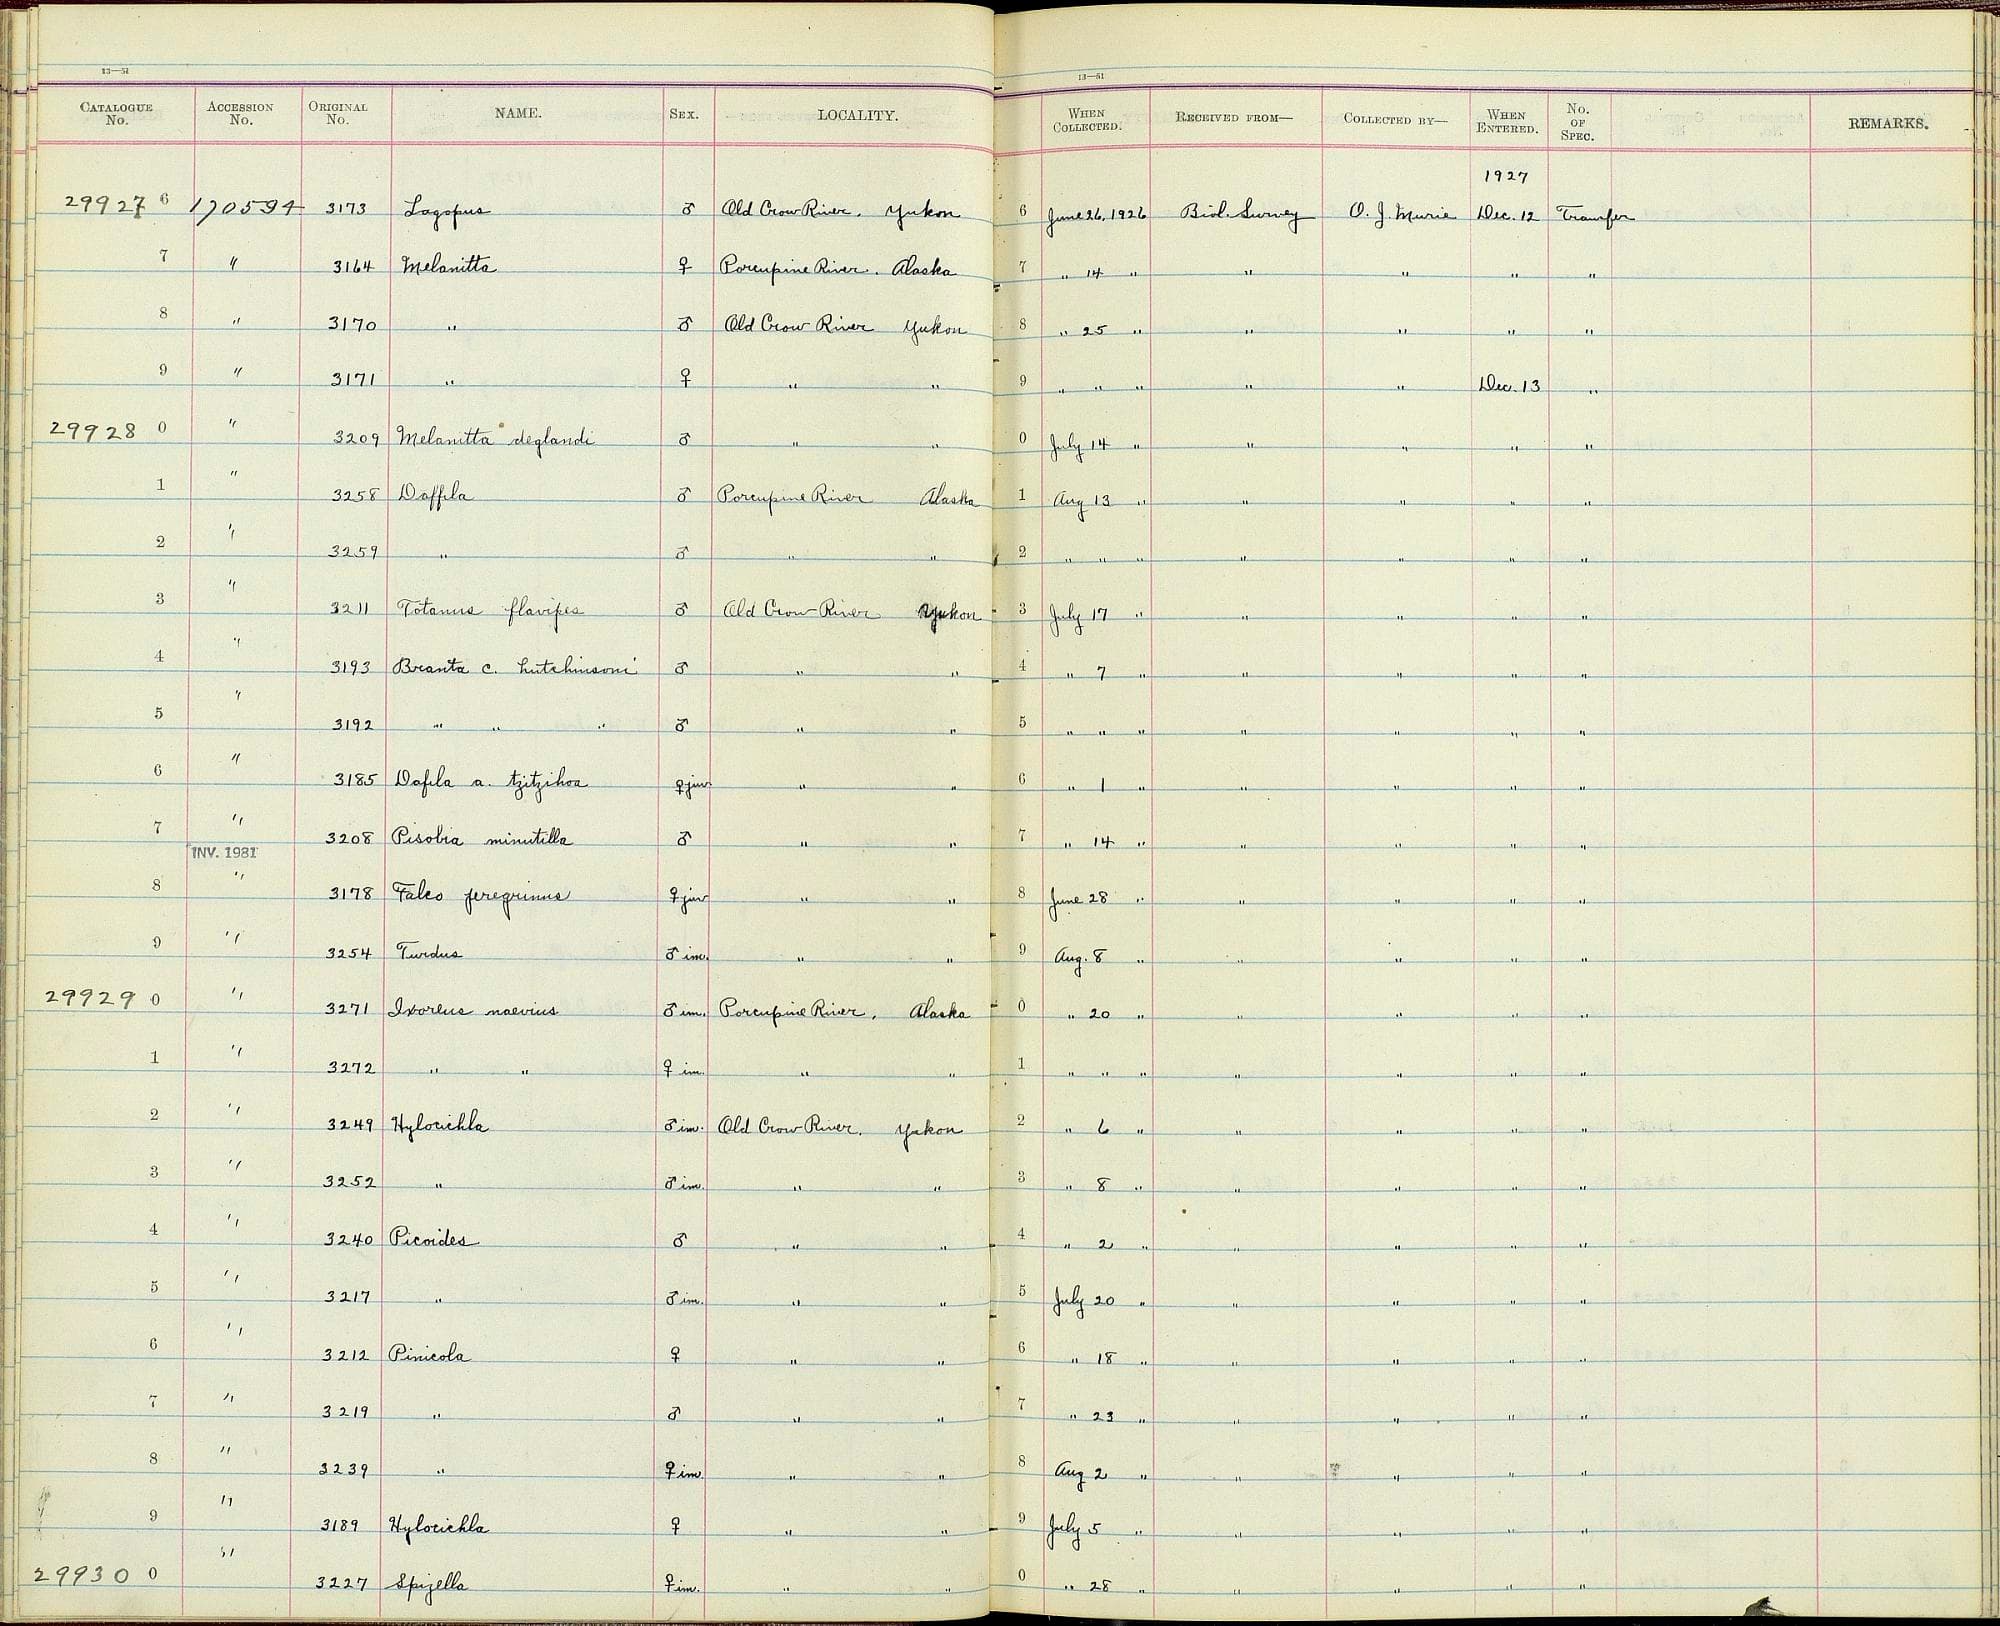 13—51 13—51
CATALOGUE No. ACCESSION No. ORIGINAL No. NAME. SEX. LOCALITY. WHEN COLLECTED. RECEIVED FROM— COLLECTED BY— WHEN ENTERED. No. OF SPEC. REMARKS.
1927
29927 6 170594 3173 Lagopus ♂ Old Crow River, Yukon 6 June 26, 1926 Biol. Survey O. J. Murie Dec. 12 Transfer
7 " 3164 Melanitta ♀ Porcupine River, Alaska 7 " 14 " " " " "
8 " 3170 " ♂ Old Crow River Yukon 8 " 25 " " " " "
9 " 3171 " ♀ " " 9 " " " " " Dec. 13 "
29928 0 " 3209 Melanitta deglandi ♂ " " 0 July 14 " " " " "
1 " 3258 Daffila ♂ Porcupine River Alaska 1 Aug 13 " " " " "
2 " 3259 " ♂ " " 2 " " " " " " "
3 " 3211 Totanus flavipes ♂ Old Crow River Yukon 3 July 17 " " " " "
4 " 3193 Branta c. hutchinsoni ♂ " " 4 " 7 " " " " "
5 " 3192 " " " ♂ " " 5 " " " " " " "
6 " 3185 Dafila a. tzitzihoa ♀ juv. " " 6 " 1 " " " " "
7 " 3208 Pisobia minutilla ♂ " " 7 " 14 " " " " "
INV. 1981
8 " 3178 Falco peregrinus ♀ juv " " 8 June 28 " " " " "
9 " 3254 Turdus ♂ im. " " 9 Aug. 8 " " " " "
29929 0 " 3271 Ixoreus naevius ♂ im. Porcupine River, Alaska 0 " 20 " " " " "
1 " 3272 " " ♀ im. " " 1 " " " " " " "
2 " 3249 Hylocichla ♂ im. Old Crow River, Yukon 2 " 6 " " " " "
3 " 3252 " ♂ im. " " 3 " 8 " " " " "
4 " 3240 Picoides ♂ " " 4 " 2 " " " " "
5 " 3217 " ♂ im. " " 5 July 20 " " " " "
6 " 3212 Pinicola ♀ " " 6 " 18 " " " " "
7 " 3219 " ♂ " " 7 " 23 " " " " "
8 " 3239 " ♀ im. " " 8 Aug 2 " " " " "
9 " 3189 Hylocichla ♀ " " 9 July 5 " " " " "
29930 0 " 3227 Spizella ♀ im. " " 0 " 28 " " " " "